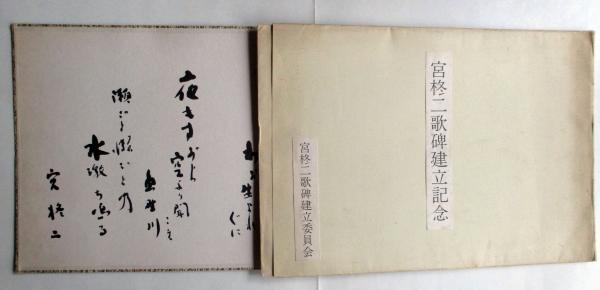 宮柊二歌碑建立記念
宮柊二歌碑建立委員会
ぐに
夜もすがら
空より聞こえ
魚野川
瀬ごと瀬ごとの
水激ち鳴る
宮柊二